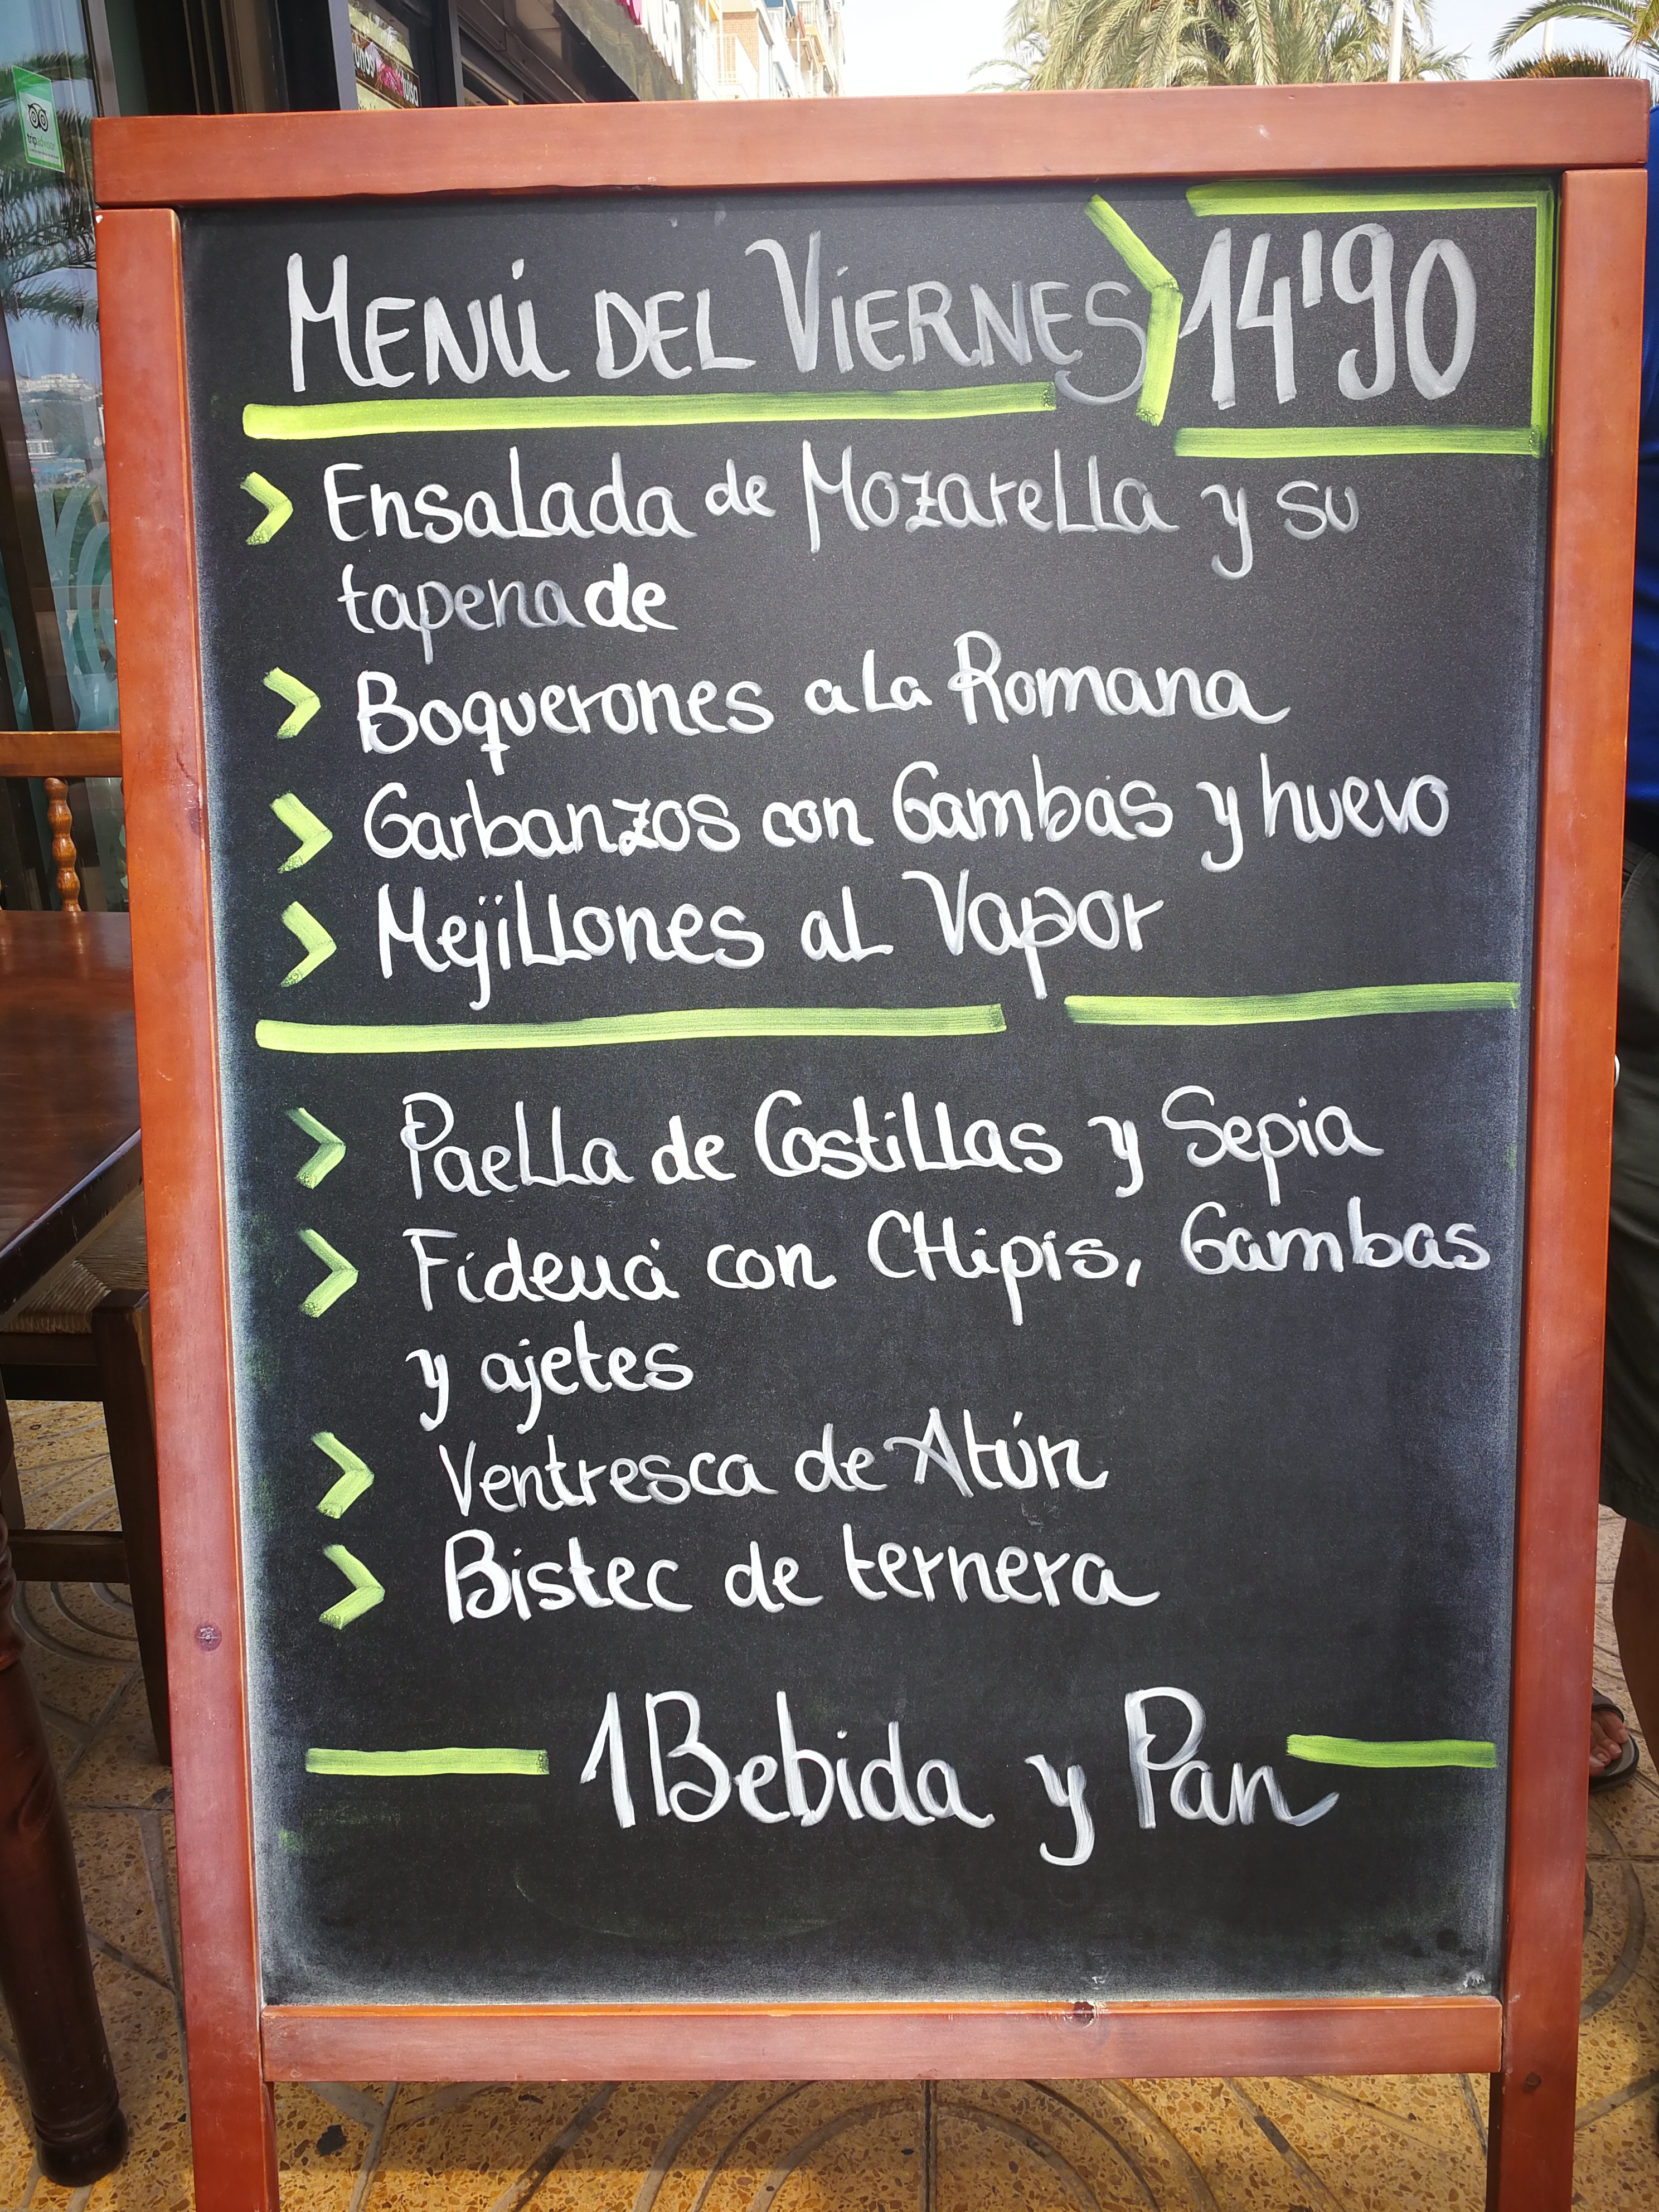 tripadvisor
MENÚ DEL VIERNES 14'90
Ensalada de Mozarella y su
tapenade
Boquerones a la Romana
Garbanzos con Gambas y huevo
Mejillones al Vapor
Paella de Costillas y Sepia
Fideuá con CHipis, Gambas
y ajetes
Ventresca de Atún
Bistec de ternera
1 Bebida y Pan